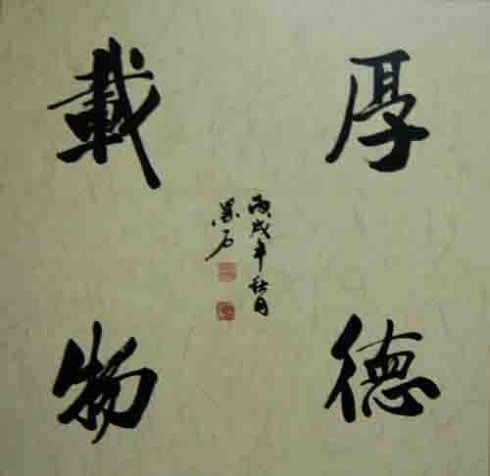 厚德
載物
丙戌年秋月